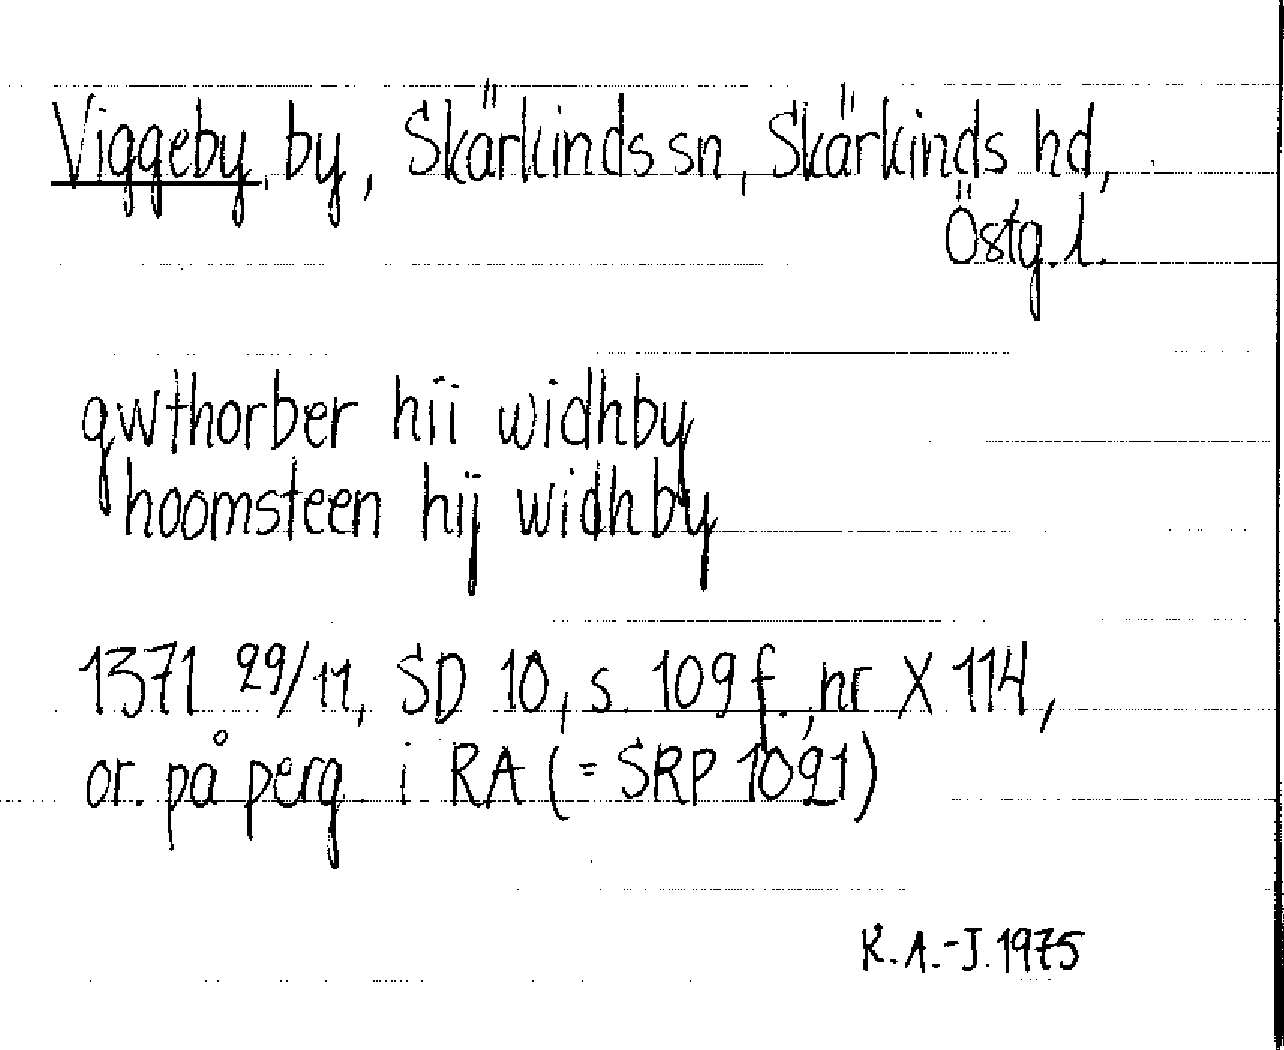 Viggeby, by, Skärkinds sn, Skärkinds hd,
Östg. l.
gwthorber hii widhby
hoomsteen hij widhby
1371 29/11, SD 10, s. 109 f., nr X 114,
or. på perg. i RA (= SRP 1021)
K.A.-J. 1975